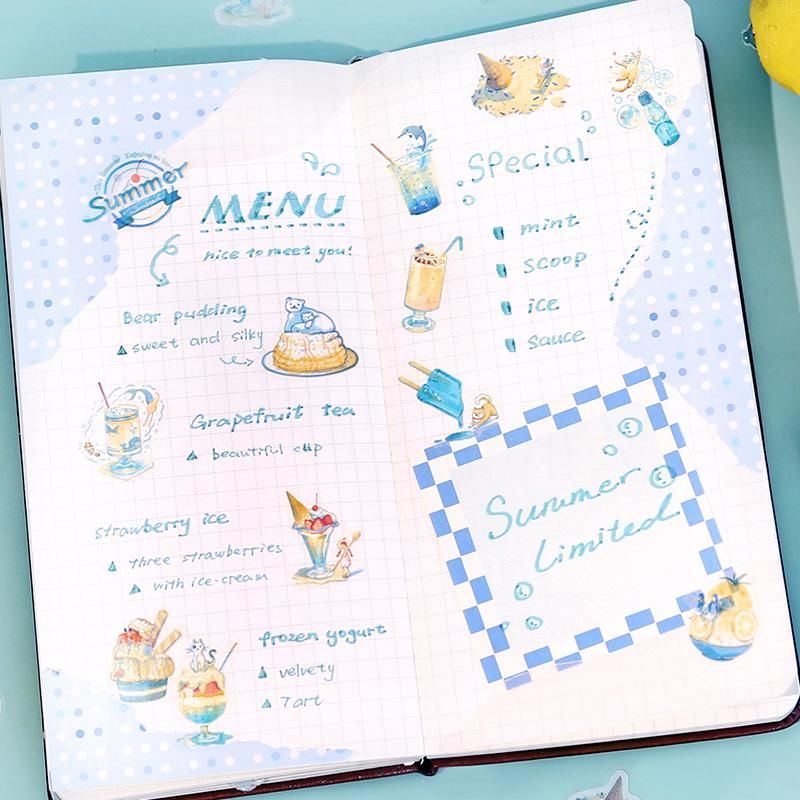 Summer
MENU
nice to meet you!
Bear pudding
sweet and silky
Grapefruit tea
beautiful cup
strawberry ice
three strawberries
with ice-cream
frozen yogurt
velvety
Tart
Special
mint
scoop
ice
sauce
Summer
Limited